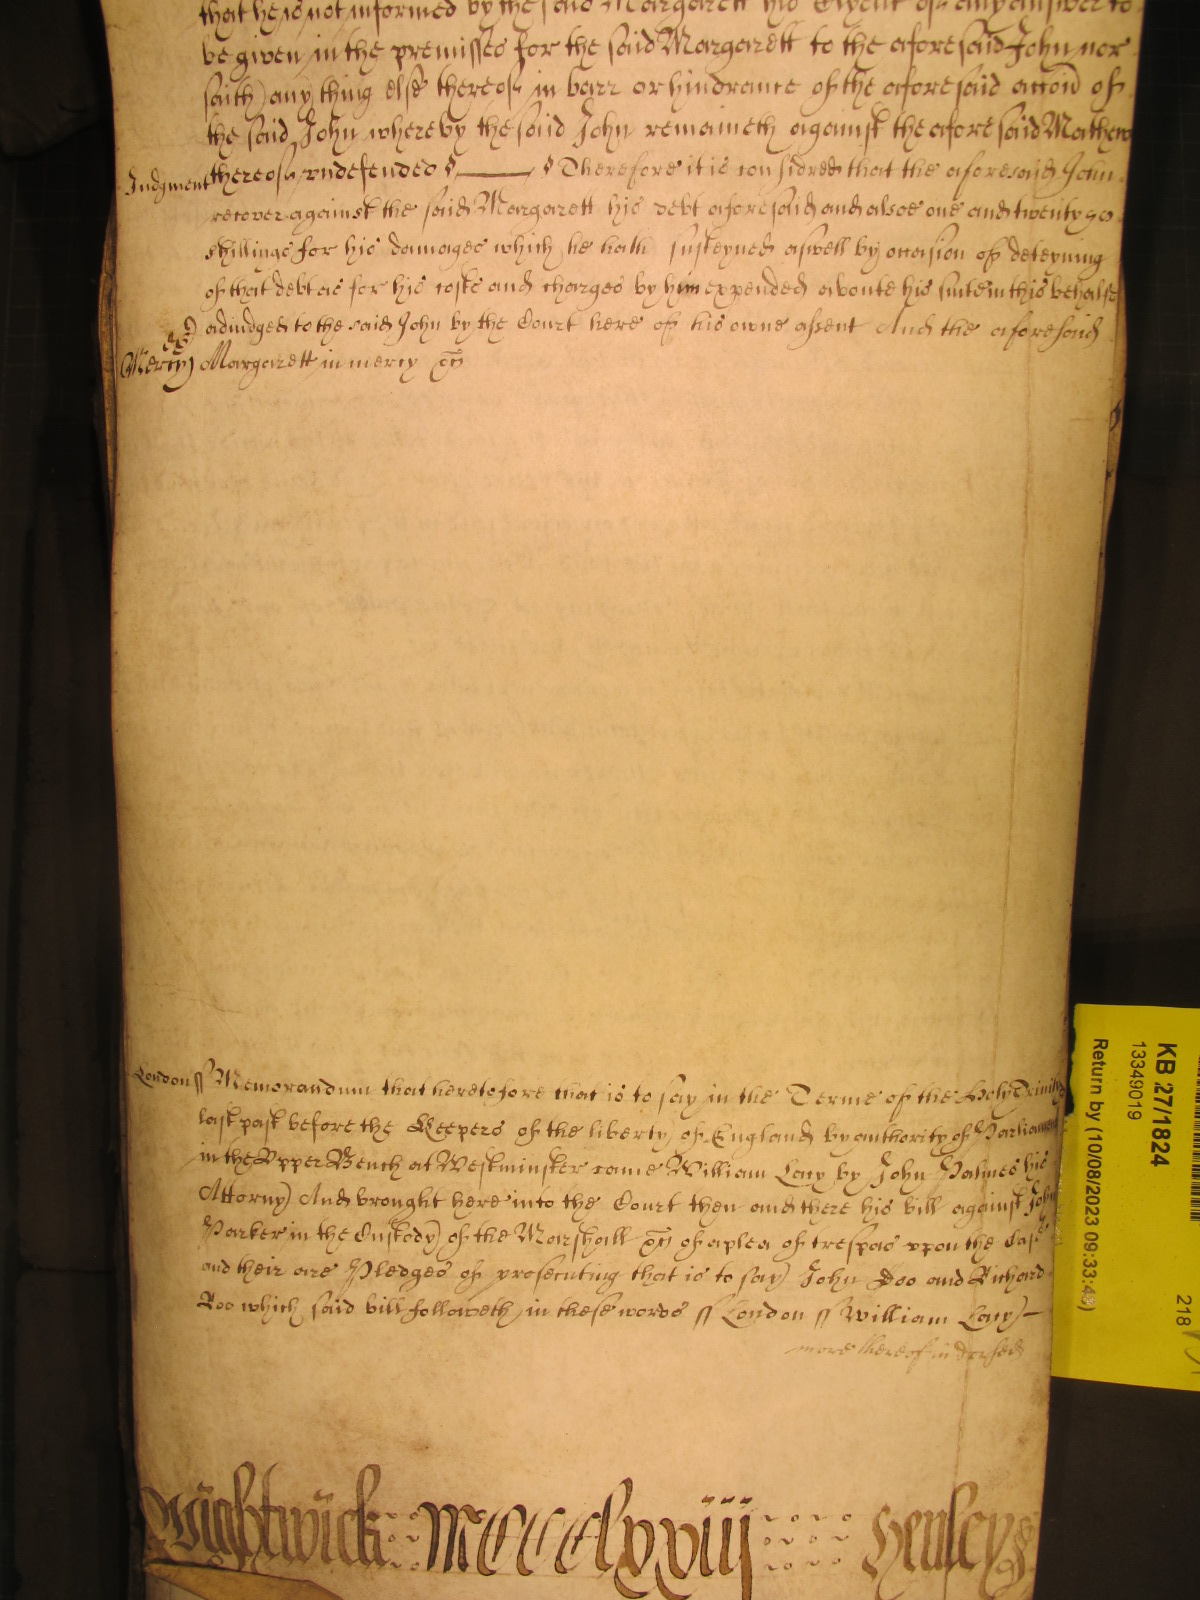 that he is not informed by the said Margarett his Clyent of any answer to
be given in the premisses for the said Margarett to the aforesaid John nor
saith any thing else thereof in barr or hindrance of the aforesaid accon of
the said John whereby the said John remaineth against the aforesaid Mathew
Judgment thereof undefended Therefore it is considred that the aforesaid John
recover against the said Margarett his debt aforesaid and alsoe one and twenty
shillings for his damages which he hath susteyned aswell by occasion of deteyning
of that debt as for his costs and charges by him expended aboute his suite in this behalfe
adiudged to the said John by the Court here of his owne assent And the aforesaid
Mercy Margarett in mercy &c
London ss Memorandum that heretofore that is to say in the Terme of the Holy Trinity
last past before the Keepers of the liberty of England by authority of Parliament
in the Upper Bench at Westminster came William Lacy by John Palmes his
Attorny And brought here into the Court then and there his bill against John
Parker in the Custody of the Marshall &c of a plea of trespas upon the Case
and their are Pledges of prosecuting that is to say John Doo and Richard
Roo which said bill followeth in these words ss London ss William Lacy
more thereof indorsed
Wightwick MCCCClxxviij Henley
KB 27/1824
13349019
Return by (10/08/2023 09:33:45)
218